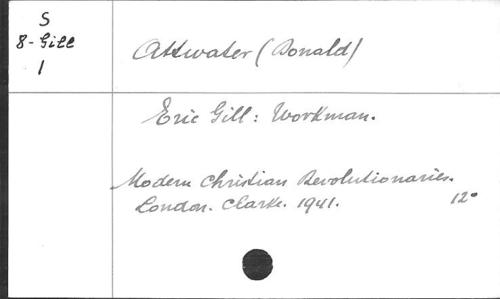 S
8-Gill
1
Attwater (Donald)
Eric Gill: Workman.
Modern Christian Revolutionaries.
London. Clarke. 1941. 12°